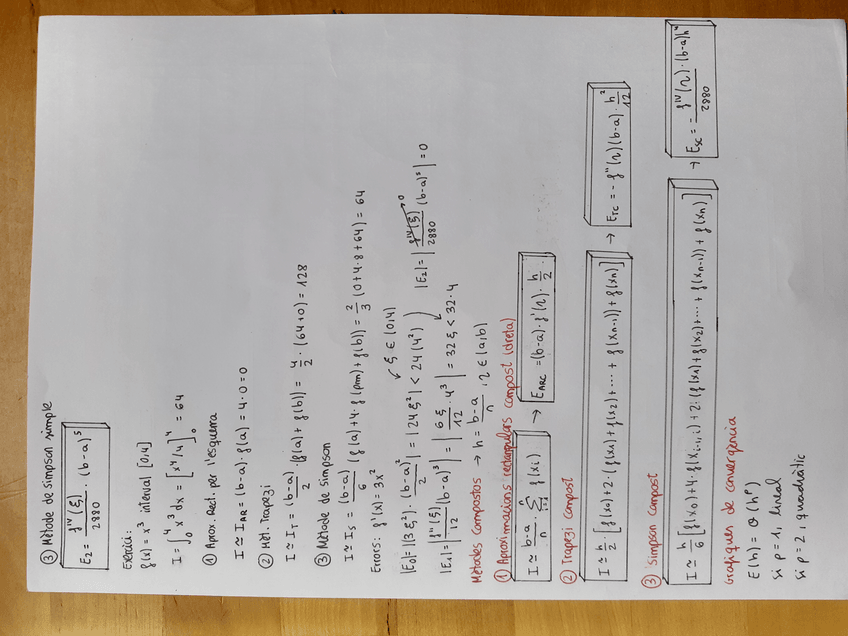 ③ Mètode de simpson simple
E₂ = - f^IV(ξ)/2880 · (b-a)⁵
Exercici:
f(x) = x³ interval [0,4]
I = ∫₀⁴ x³ dx = [x⁴/4]₀⁴ = 64
① Aprox. Rect. per l'esquerra
I ≃ I_AR = (b-a)·f(a) = 4·0 = 0
② Mèt. Trapezi
I ≃ I_T = (b-a)/2 · (f(a) + f(b)) = 4/2 · (64+0) = 128
③ Mètode de Simpson
I ≃ I_S = (b-a)/6 (f(a) + 4·f(pm) + f(b)) = 2/3 (0+4·8+64) = 64
Errors: f'(x) = 3x² ξ ∈ (0,4)
|E₀| = |(3ξ²)·(b-a)²/2| = |24ξ²| < 24(4²)
|E₁| = |f''(ξ)/12 (b-a)³| = |6ξ/12 · 4³| = 32ξ < 32·4 |E₂| = |f^IV(ξ)/2880 (b-a)⁵| = 0
Mètodes compostos → h = (b-a)/n, η ∈ (a,b)
① Aproximacions rectangulars compost (dreta)
I ≃ (b-a)/n · Σ_{i=1}^{n} f(xi) → E_ARC = (b-a)·f'(η)·h/2
② Trapezi compost
I ≃ h/2 · [f(x0) + 2·(f(x1) + f(x2) + ··· + f(xn-1)) + f(xn)] → E_TC = - f''(η)(b-a)·h²/12
③ Simpson compost
I ≃ h/6 [f(x0) + 4·f(xi-1,i) + 2·(f(x1) + f(x2) + ··· + f(xn-1)) + f(xn)] → E_SC = - f^IV(η)·(b-a)h⁴/2880
Gràfiques de convergència
E(h) = O(h^p)
si p=1, lineal
si p=2, quadràtic